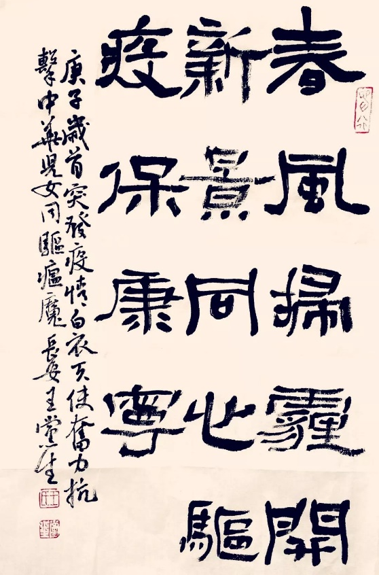 春風掃霾開
新景同心驅
疫保康寧
庚子歲首突發疫情白衣天使奮力抗
擊中華兒女同驅瘟魔 長安王黨生